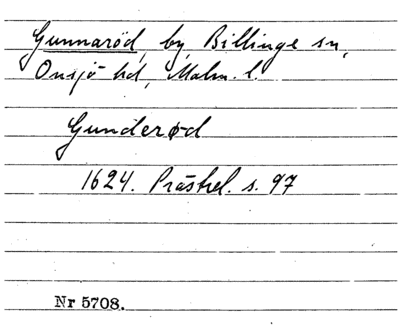 Gunnaröd, by, Billinge sn,
Onsjö hd, Malm. l.
Gunderød
1624. Prästrel. s. 97
Nr 5708.